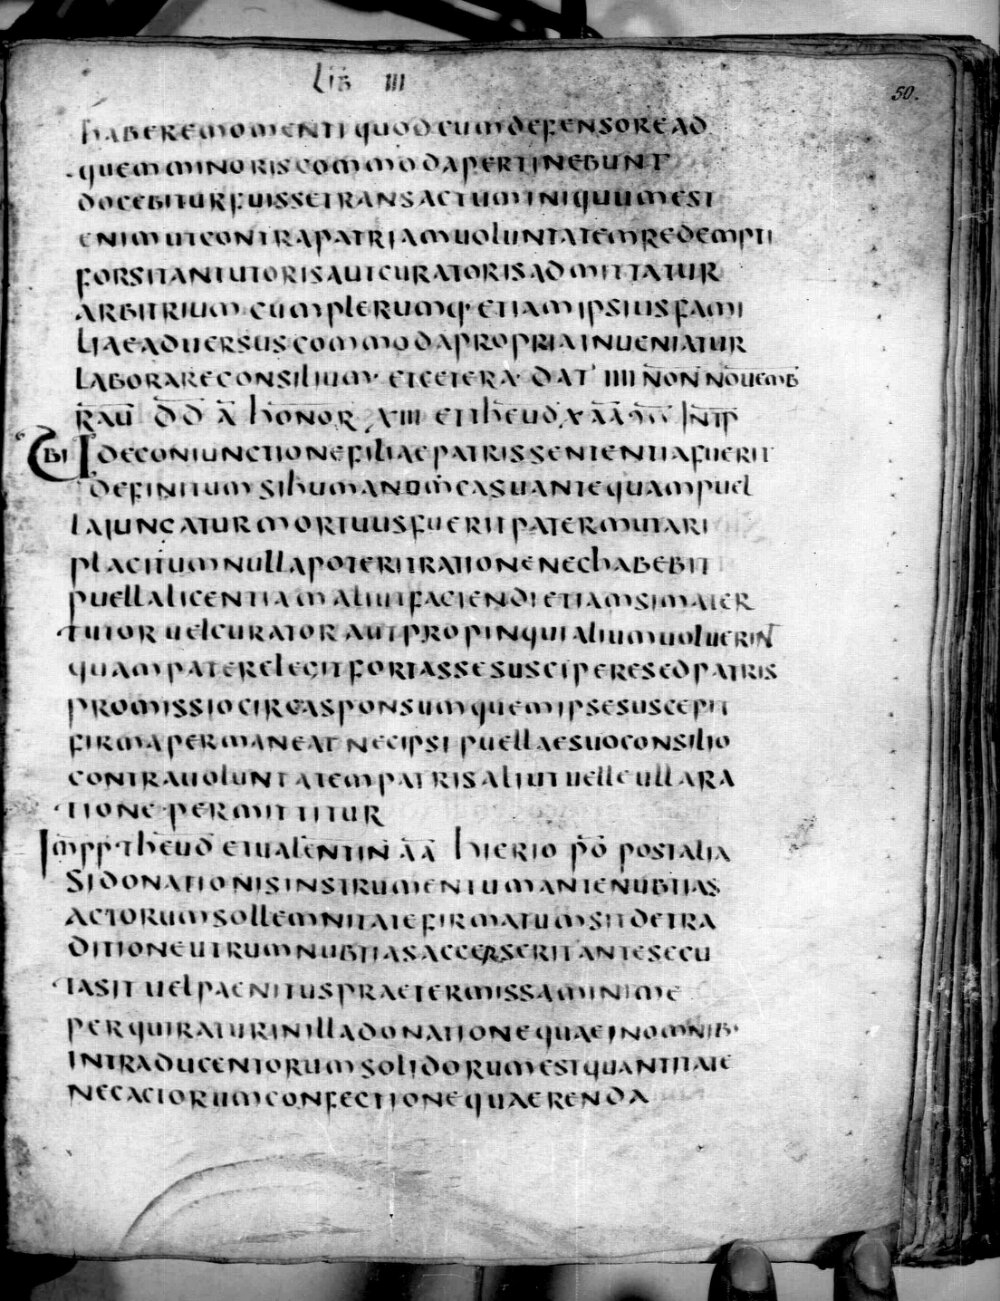 LIB III
50.
habere momenti quod cum defensore ad
quem minoris commoda pertinebunt
docebitur fuisse transactum iniquum est
enim ut contra patriam voluntatem redempti
forsitan tutoris aut curatoris admittatur
arbitrium cum plerumq· etiam ipsius fami
liae adversus commoda propria inveniatur
laborare consilium· et cetera· dat· IIII non novemb
rav̄ d̄d̄ ā honor XIII et theud X āā Intp̄
Ubi I de coniunctione filiae patris sententia fuerit
definitum si humano m̄ casu antequam puel
la iuncatur mortuus fuerit pater mutari
placitum nulla poterit ratione nec habebit
puella licentiam aliut faciendi etiam si mater
tutor vel curator aut propinqui alium voluerint
quam pater elegit fortasse suscipere sed patris
promissio circa sponsum quem ipse suscepit
firma permaneat nec ipsi puellae suo consilio
contra voluntatem patris aliut velle ulla ra
tione permittitur
Imp̄p̄· theud̄ et valentin̄ āā hierio p̄ō post alia
Si donationis instrumentum ante nubtias
actorum sollemnitate firmatum sit de tra
ditione utrum nubtias accerserit an te secu
ta sit vel paenitus praetermissa minime
perquiratur in illa donatione quae in omnib·
intra ducentorum solidorum est quantitate
nec actorum confectione quaerenda